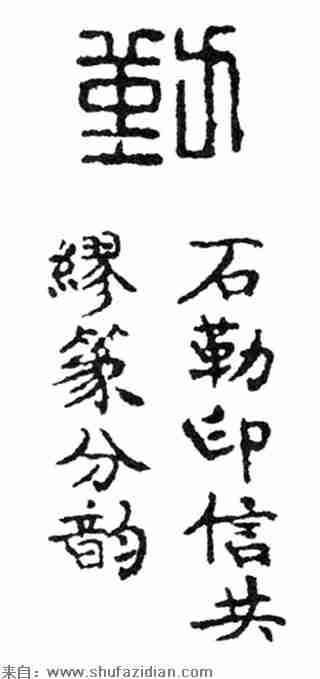 勒
石勒印信共
繆篆分韵
来自：www.shufazidian.com